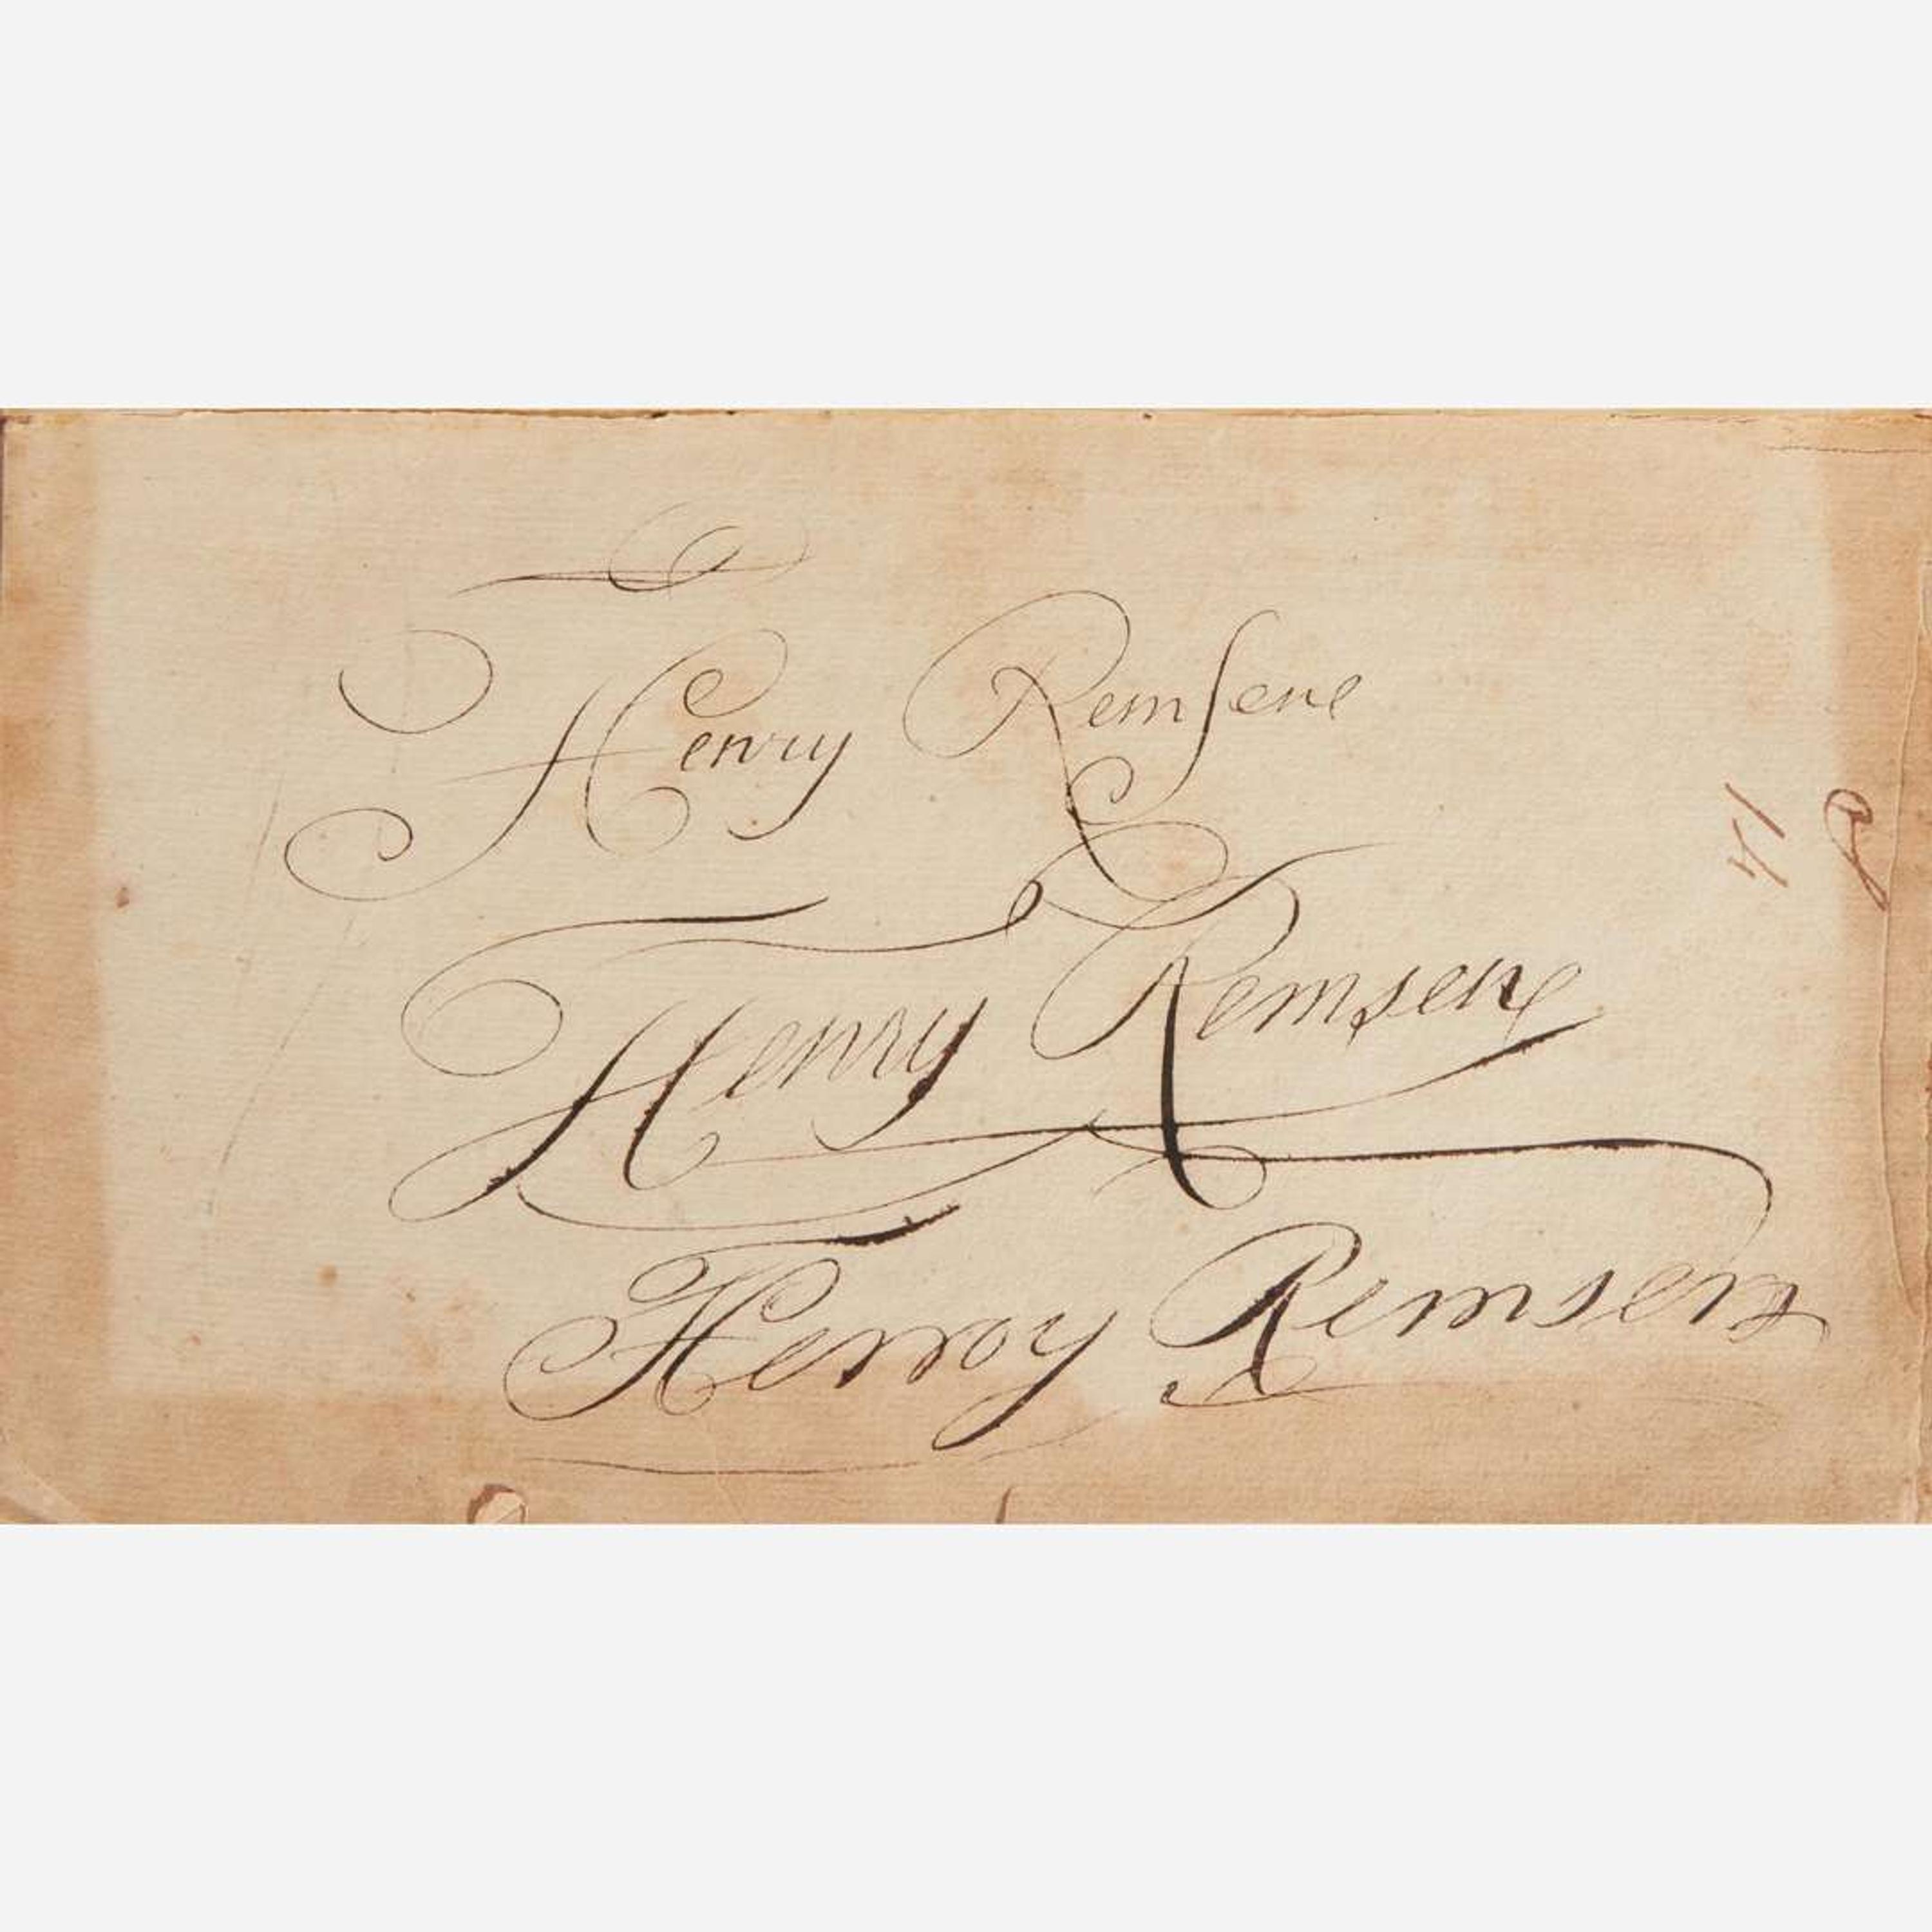 Henry Remſene
Henry Remsene
Henroy Remsen